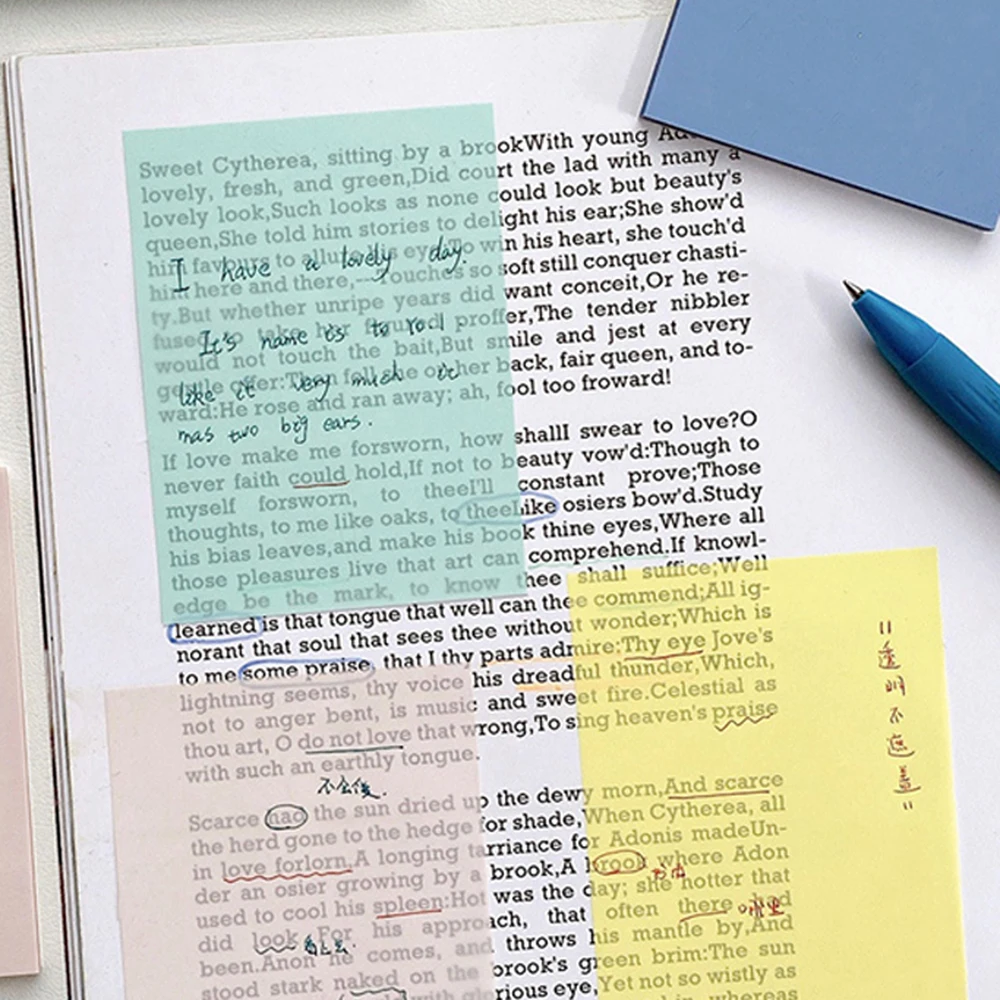 Sweet Cytherea, sitting by a brookWith young
lovely, fresh, and green,Did court the lad with many a
lovely look,Such looks as none could look but beauty's
queen,She told him stories to delight his ear;She show'd
him favours to allure his eye;To win his heart, she touch'd
I have a lovely day.
him here and there,--Touches so soft still conquer chasti-
ty.But whether unripe years did want conceit,Or he re-
fused to take her figured proffer,The tender nibbler
It's name is to
would not touch the bait,But smile and jest at every
gentle offer:Then fell she on her back, fair queen, and to-
like it very much it
ward:He rose and ran away; ah, fool too froward!
mas two big ears.
If love make me forsworn, how shallI swear to love?O
never faith could hold,If not to beauty vow'd:Though to
myself forsworn, to theeI'll constant prove;Those
thoughts, to me like oaks, to theeLike osiers bow'd.Study
his bias leaves,and make his book thine eyes,Where all
those pleasures live that art can comprehend.If knowl-
edge be the mark, to know thee shall suffice;Well
learned is that tongue that well can thee commend;All ig-
norant that soul that sees thee without wonder;Which is
to me some praise, that I thy parts admire:Thy eye Jove's
lightning seems, thy voice his dreadful thunder,Which,
not to anger bent, is music and sweet fire.Celestial as
thou art, O do not love that wrong,To sing heaven's praise
with such an earthly tongue.
"透明不遮盖"
Scarce had the sun dried up the dewy morn,And scarce
the herd gone to the hedge for shade,When Cytherea, all
in love forlorn,A longing tarriance for Adonis madeUn-
der an osier growing by a brook,A brook where Adon
used to cool his spleen:Hot was the day; she hotter that
did look For his approach, that often there had
哪里
been.Anon he comes, and throws his mantle by,And
stood stark naked on the brook's green brim:The sun
with glorious eye,Yet not so wistly as
whereas